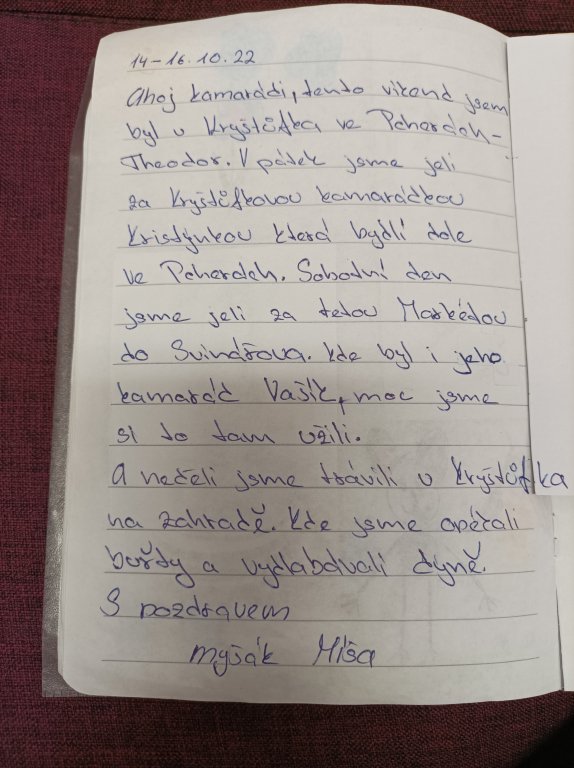 14-16.10.22
Ahoj kamarádi, tento víkend jsem
byl u Kryštůfka ve Pcherách-
Theodor. V pátek jsme jeli
za Kryštůfkovou kamarádkou
Kristýnkou která bydlí dole
ve Pcherách. Sobotní den
jsme jeli za tetou Markédou
do Svindřova. Kde byl i jeho
kamarád Vašík, moc jsme
si to tam užili.
A neděli jsme trávili u Kryštůfka
na zahradě. Kde jsme opékali
buřty a vydlabávali dýně.
S pozdravem
myšák Míša